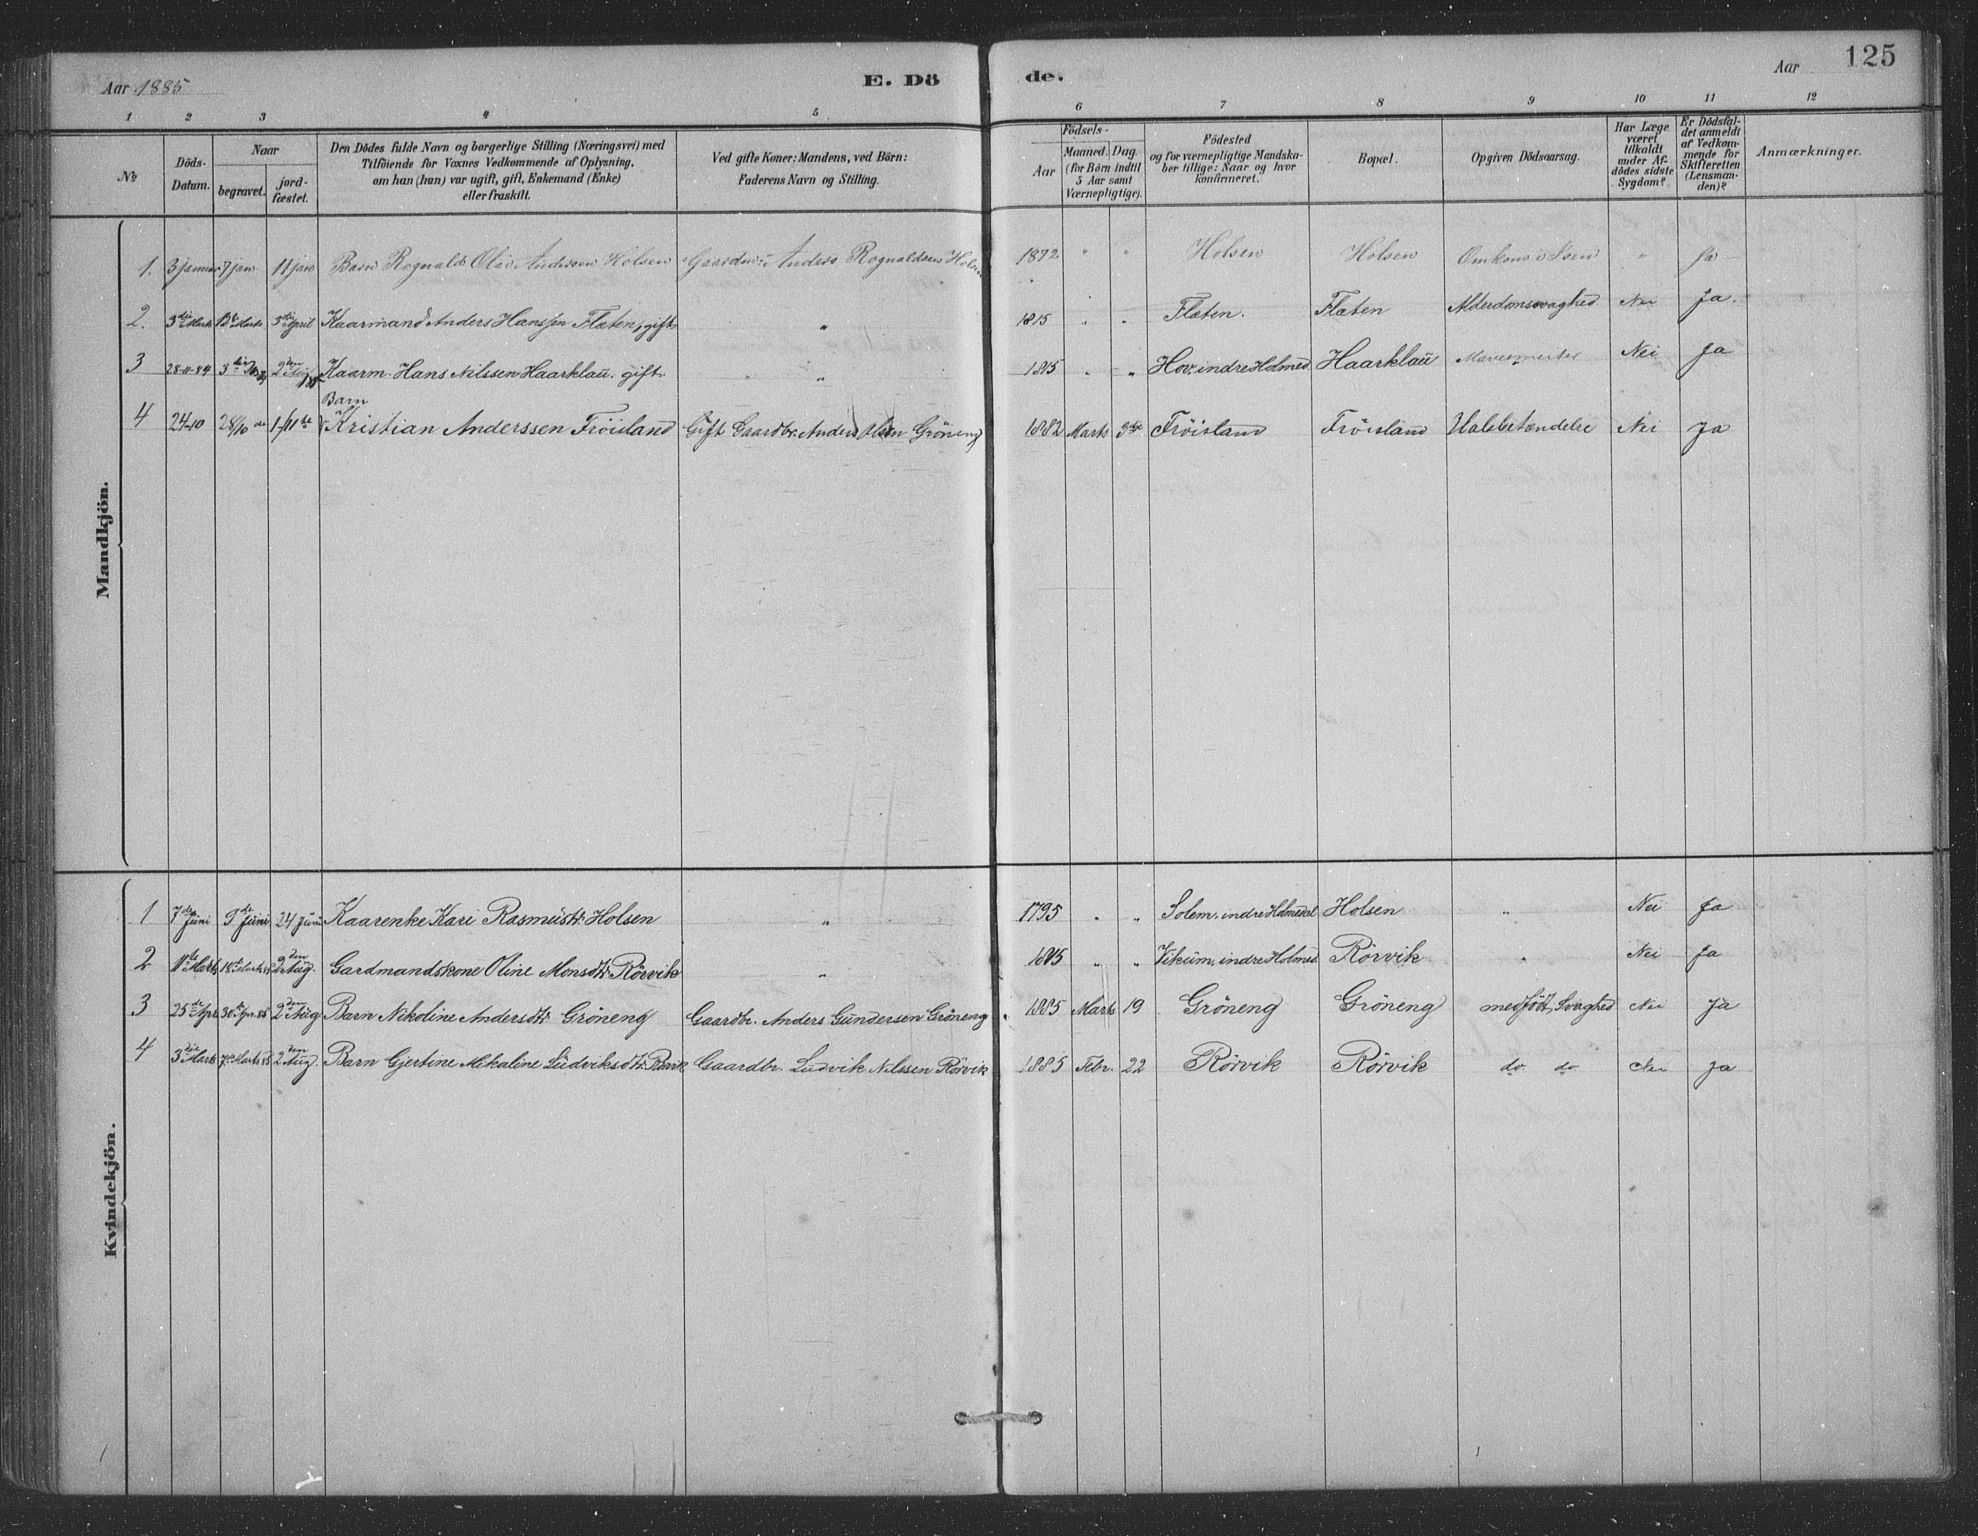 Aar 1885
E. Dö
de.
Aar
125
1 2 3 4 5 6 7 8 9 10 11 12
№
Döds-Datum.
Naar
begravet.
jord-fæstet.
Den Dödes fulde Navn og borgerlige Stilling (Næringsvei) med
Tilföiende for Voxnes Vedkommende af Oplysning,
om han (hun) var ugift, gift, Enkemand (Enke)
eller fraskilt.
Ved gifte Koner: Mandens, ved Börn:
Faderens Navn og Stilling.
Födsels-
Aar
Maaned. Dag.
(for Börn indtil
5 Aar samt
Værnepligtige).
Födested
og for værnepligtige Mandska-
ber tillige: Naar og hvor
konfirmeret.
Bopæl.
Opgiven Dödsaarsag.
Har Læge
været
tilkaldt
under Af-
dödes sidste
Sygdom?
Er Dödsfal-
det anmeldt
af Vedkom-
mende for
Skifteretten
(Lensman-
den)?
Anmærkninger.
Mandkjön.
1. 3 januar 7 jan. 11 jan Barn Rognald Olai Andersen Holsen Gaardm: Anders Rognaldsen Holsen 1872 " " Holsen Holsen Omkom i Isen " Ja
2. 3die Marts 13de Marts 5die April Kaarmand Anders Hanssen Flaten, gift " 1815 " " Flaten. Flaten Alderdomssvaghed Nei Ja.
3 28-11-84 3die 2den Kaarm. Hans Nilssen Haarklau. gift. " 1815 " " Hov. indre Holmed. Haarklau Nei Ja
4 24-10 28/10 1-11te Barn Kristian Anderssen Fröisland Gift Gaardbr. Anders Olsen Gröneng 1882 Marts 3die Fröisland Fröisland Halsbetændelse Nei Ja
Kvindekjön.
1 7de Juni 9de Juni 24 Juni Kaarenke Kari Rasmusdtr. Holsen " 1795 " " Solem, indre Holmedal Holsen " Nei Ja
2 11te Marts 18de Marts 85 2den Aug. Gardmandskone Oline Monsdtr. Rörvik " 1815 " " Vikum, indre Holmed. Rörvik " Nei Ja
3 25de Apr. 30te Apr. 85 2den Aug Barn Nikoline Andersdtr. Gröneng Gaardbr. Anders Gundersen Gröneng 1885 Marts 19 Gröneng Gröneng medfödt Svaghed Nei Ja
4 3die Marts 7de Marts 85 2den Aug. Barn Gjertine Mikaline Ludviksdtr. Rörvik Gaardbr. Ludvik Nilssen Rörvik 1885 Febr. 22 Rörvik Rörvik do do Nei Ja